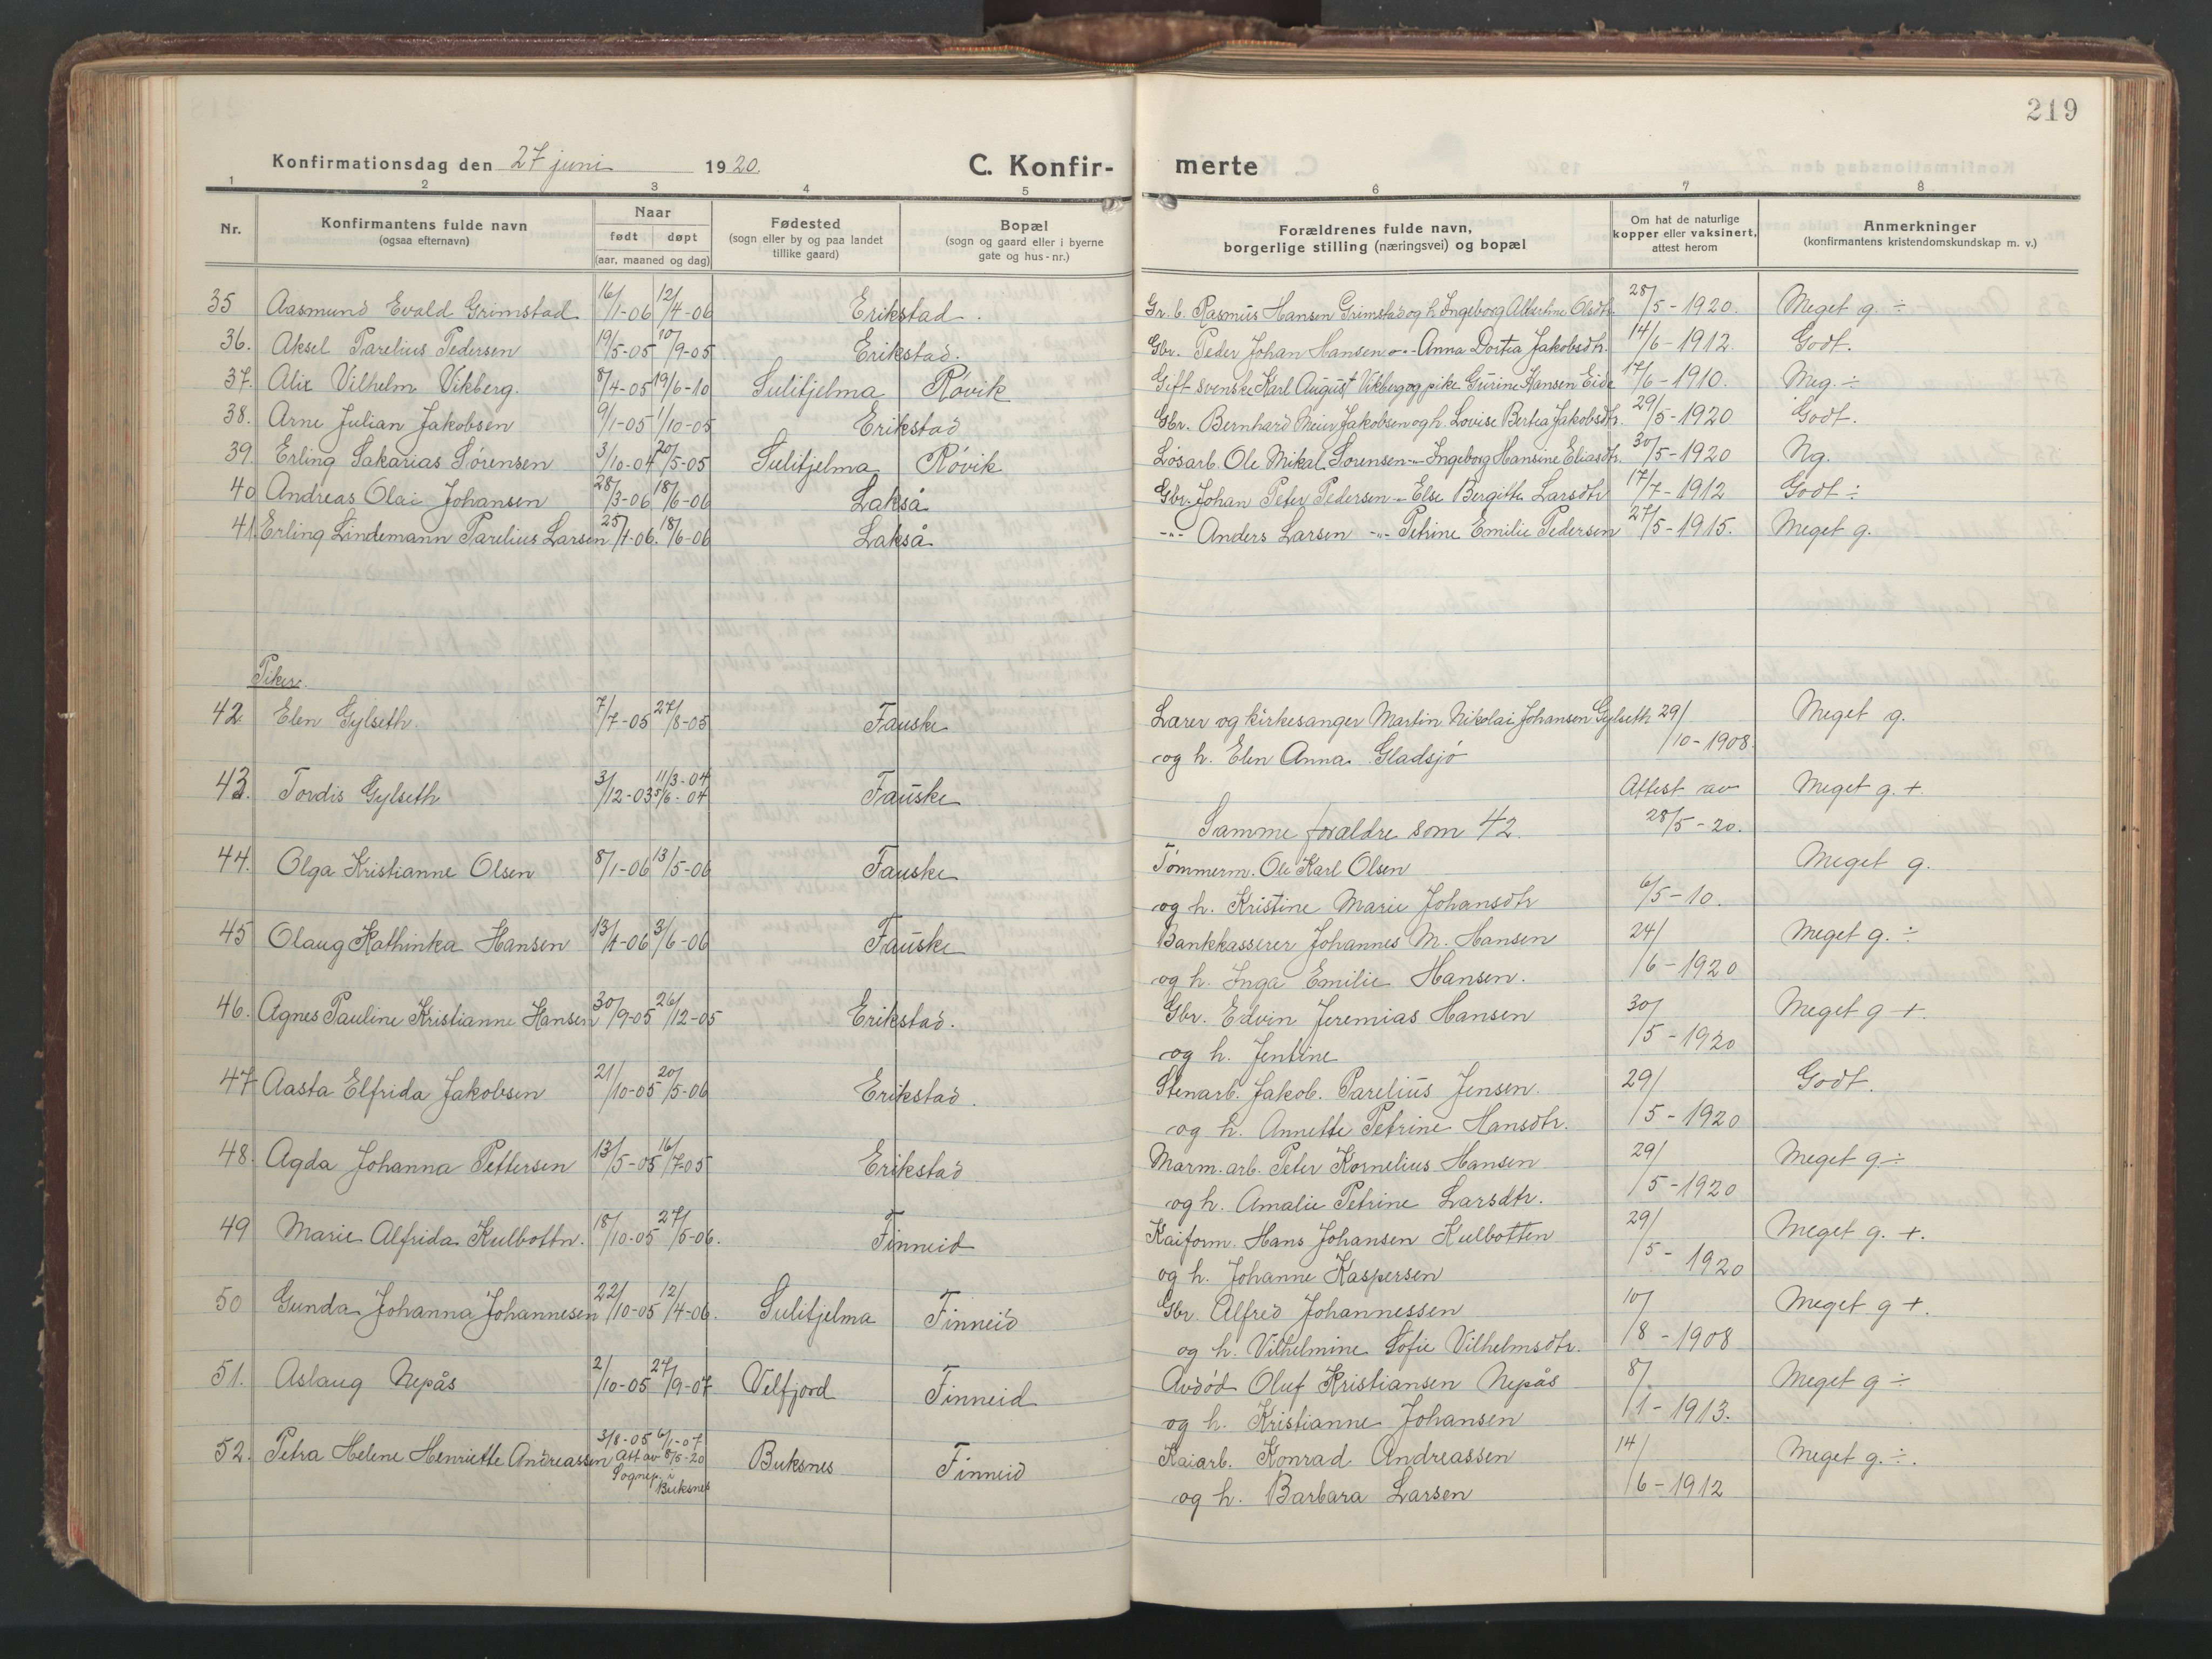 219
Konfirmationsdag den 27 juni 1920. C. Konfirmerte
1 2 3 4 5 6 7 8
Nr. Konfirmantens fulde navn (ogsaa efternavn) Naar født døpt (aar, maaned og dag) Fødested (sogn eller by og paa landet tillike gaard) Bopæl (sogn og gaard eller i byerne gate og hus-nr.) Forældrenes fulde navn, borgerlige stilling (næringsvei) og bopæl Om hat de naturlige kopper eller vaksinert, attest herom Anmerkninger (konfirmantens kristendomskundskap m. v.)
35 Aasmund Evald Grimstad 16/1-06 12/4-06 Erikstad. Gr.b. Rasmus Hansen Grimstad og h. Ingeborg Albertine Olsdtr. 28/5-1920. Meget g. ÷
36. Aksel Parelius Pedersen 19/5-05 10/9-05 Erikstad. Gbr. Peder Johan Hansen -"- Anna Dortea Jakobsdtr. 14/6-1912. Godt.
37. Alix Vilhelm Vikberg. 8/4-05 19/6-10 Sulitjelma Røvik Gift svenske Karl August Vikberg og pike Gurine Hansen Eide 17/6-1910. Meg. ÷
38. Arne Julian Jakobsen 9/1-05 1/10-05 Erikstad Gbr. Bernhard Meier Jakobsen og h. Lovise Bertea Jakobsdtr. 29/5-1920 Godt.
39. Erling Sakarias Sørensen 3/10-04 20/5-05 Sulitjelma Røvik Løsarb. Ole Mikal Sørensen -"- Ingeborg Hansine Eliasdtr. 30/5-1920 Ng.
40 Andreas Olai Johansen 28/3-06 18/6-06 Lakså Gbr. Johan Peter Pedersen -"- Else Bergitte Larsdtr 17/7-1912 Godt ÷
41. Erling Lindemann Parelius Larsen 25/1-06. 18/6-06 Lakså -"- Anders Larsen -"- Petrine Emilie Pedersen 27/5-1915. Meget g.
Piker.
42. Elen Gylseth. 7/7-05 27/8-05 Fauske Lærer og kirkesanger Martin Nikolai Johansen Gylseth 29/10-1908. Meget g.
og h. Elen Anna Gladsjø
43. Tordis Gylseth 3/12-03 11/3-04 5/6-04 Fauske Attest av Meget g. +.
Samme forældre som 42. 28/5-20.
44. Olga Kristianne Olsen 8/1-06 13/5-06 Fauske Tømmerm. Ole Karl Olsen Meget g.
og h. Kristine Marie Johansdtr 6/5-10.
45 Olaug Kathinka Hansen 13/4-06 3/6-06 Fauske Bankkasserer Johannes M. Hansen 24/6-1920 Meget g. ÷
og h. Inga Emilie Hansen.
46. Agnes Pauline Kristianne Hansen 30/9-05 26/12-05 Erikstad. Gbr. Edvin Jeremias Hansen 30/5-1920 Meget g +.
og h. Jentine
47 Aasta Elfrida Jakobsen 21/10-05 20/5-06 Erikstad. Stenarb. Jakob. Parelius Jensen. 29/5-1920 Godt.
og h. Annette Petrine Hansdtr.
48. Agda Johanna Pettersen 13/5-05 16/7-05 Erikstad Marm. arb. Peter Kornelius Hansen 29/5-1920 Meget g ÷
og h. Amalie Petrine Larsdtr.
49 Marie Alfrida Kulbottn. 18/10-05 27/5-06. Finneid Kaiform. Hans Johansen Kulbotten 29/5-1920 Meget g. +.
og h. Johanne Kaspersen
50 Gunda Johanna Johannesen 22/10-05 12/4-06. Sulitjelma Finneid Gbr. Alfred Johannessen 10/8-1908 Meget g +.
og h. Vilhelmine Sofie Vilhelmsdtr.
51. Aslaug Nepås 2/10-05 27/9-07 Velfjord Finneid Avdød Oluf Kristiansen Nepås 8/1-1913. Meget g ÷
og h. Kristianne Johansen
52. Petra Helene Henriette Andreassen 3/8-05 6/1-07 Att av 8/5-20 Sognep. i Buksnes Buksnes Finneid Kaiarb. Konrad Andreassen 14/6-1912 Meget g. ÷.
og h. Barbara Larsen